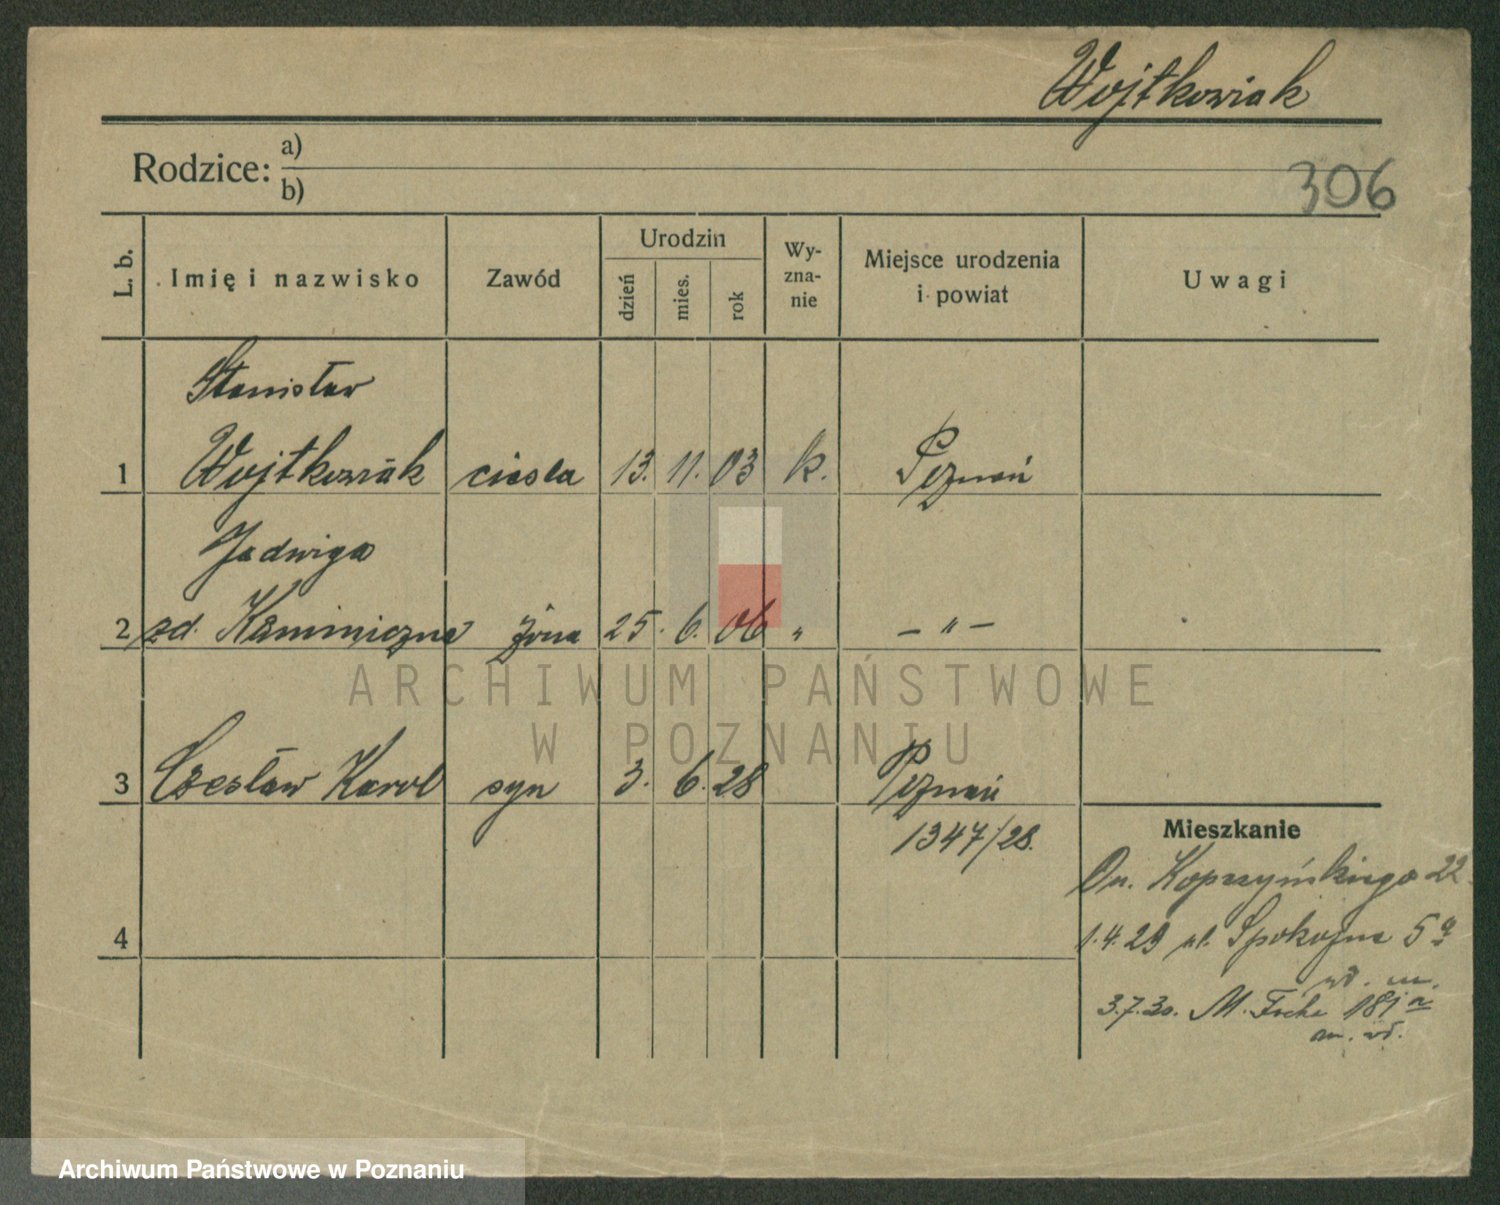 Wojtkowiak
Rodzice: a)
b)
306
L. b.
Imię i nazwisko
Zawód
Urodzin
dzień
mies.
rok
Wy-
zna-
nie
Miejsce urodzenia
i powiat
Uwagi
Stanisław
1 Wojtkowiak cieśla 13. 11. 03 k. Poznań
Jadwiga
2 zd. Kamieniczna żona 25. 6. 06 " — " —
ARCHIWUM PAŃSTWOWE
W POZNANIU
3 Czesław Karol syn 3. 6. 28 Poznań
1347/28.
Mieszkanie
22
4
1.4.29 ul. Spokojna 5a
3.7.30. M. Focha 181a
Archiwum Państwowe w Poznaniu